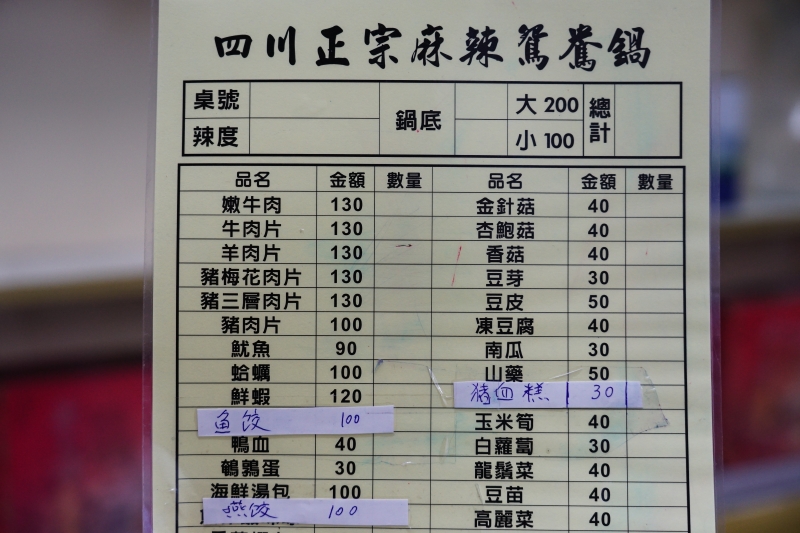 四川正宗麻辣鴛鴦鍋
桌號 鍋底 大 200 總計
辣度 小 100
品名 金額 數量 品名 金額 數量
嫩牛肉 130 金針菇 40
牛肉片 130 杏鮑菇 40
羊肉片 130 香菇 40
豬梅花肉片 130 豆芽 30
豬三層肉片 130 豆皮 50
豬肉片 100 凍豆腐 40
魷魚 90 南瓜 30
蛤蠣 100 山藥 50
鮮蝦 120 猪血糕 30
魚餃 100 玉米筍 40
鴨血 40 白蘿蔔 30
鵪鶉蛋 30 龍鬚菜 40
海鮮湯包 100 豆苗 40
燕餃 100 高麗菜 40